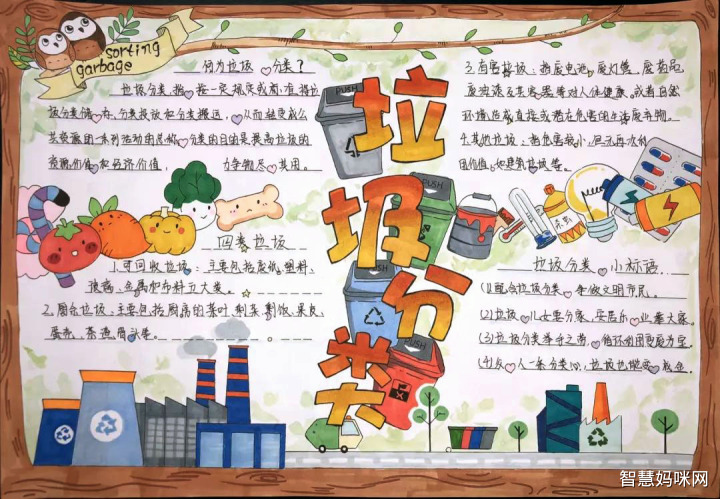 sorting
garbage
何为垃圾分类？
垃圾分类，指按一定规定或标准将垃
圾分类储存、分类投放和分类搬运，从而转变成公
共资源的一系列活动的总称。分类的目的是提高垃圾的
资源价值和经济价值，力争物尽其用。
四类垃圾
1.可回收垃圾：主要包括废纸、塑料、
玻璃、金属和布料五大类。
2.厨余垃圾：主要包括厨房的茶叶、剩菜、剩饭、果皮、
蛋壳、茶渣、骨头等。
垃圾分类
PUSH
PUSH
3.有害垃圾：指废电池、废灯管、废药品、
废油漆及其容器等对人体健康或者自然
环境造成直接或潜在危害的生活废弃物。
4.其他垃圾：指危害较小，但无再次利
用价值，如建筑垃圾等。
垃圾分类小标语
(1)配合垃圾分类，争做文明市民。
(2)垃圾儿女要分家，安居乐业靠大家。
(3)垃圾分类举手之劳，循环利用变废为宝。
(4)众人一条分类心，垃圾也能变成金。
智慧妈咪网